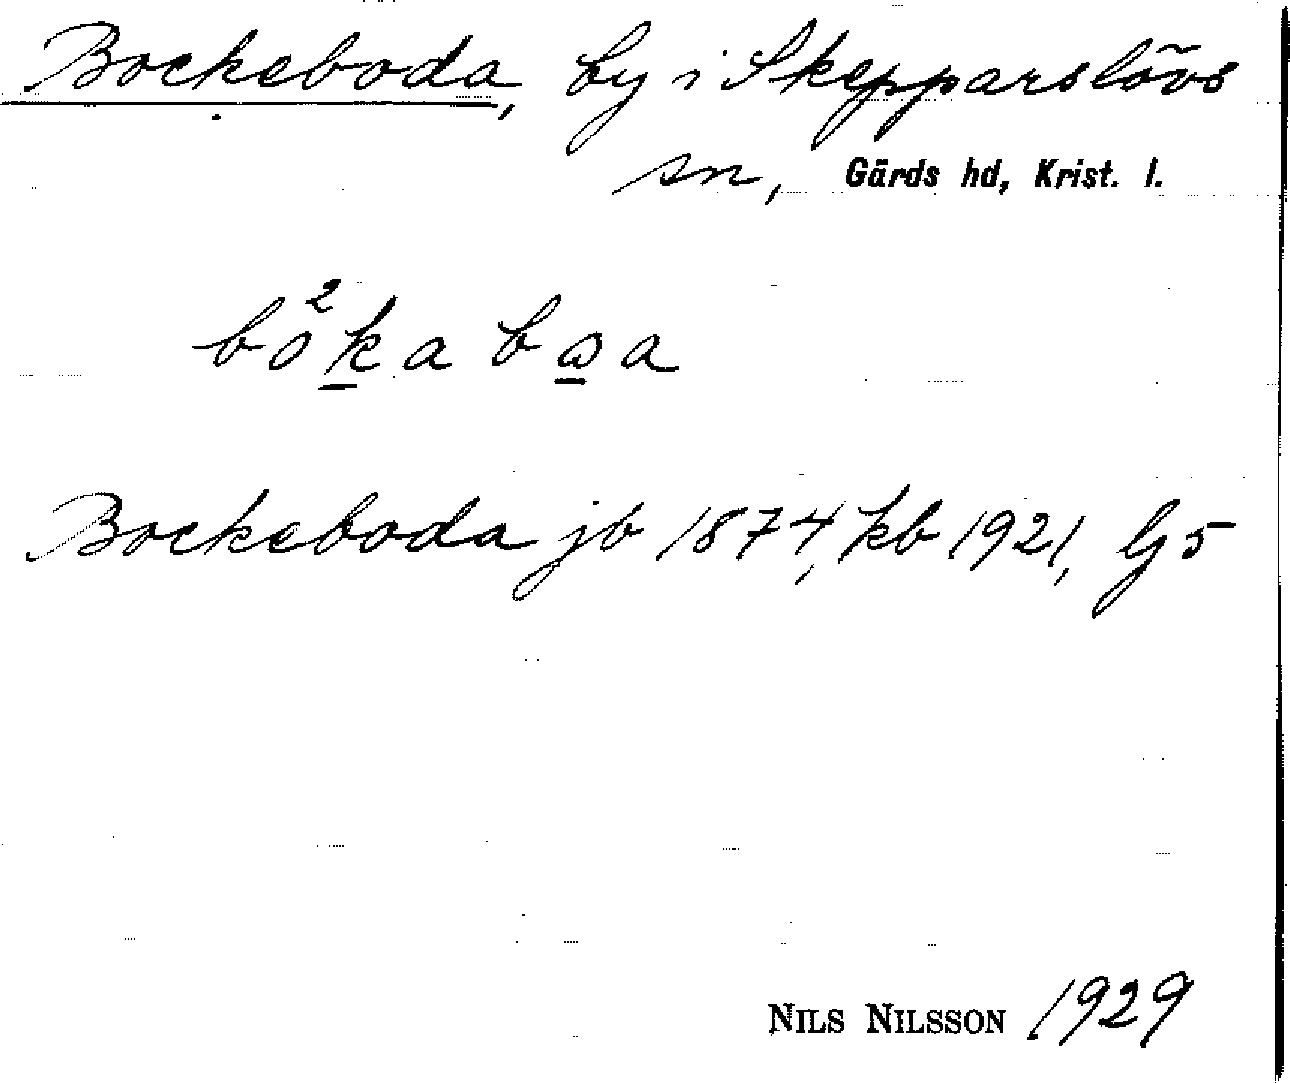 Bockeboda, by i Skepparslövs
sn, Gärds hd, Krist. l.
bo²ka bωa
Bockeboda jb 1874, kb 1921, G5
NILS NILSSON 1929